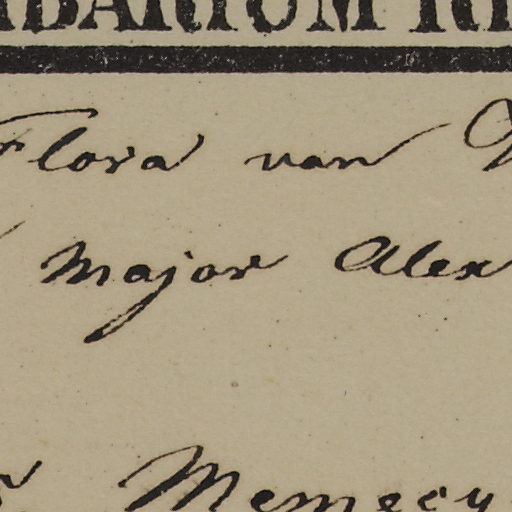 BARIUM
Flora van
major Alex
Memecy